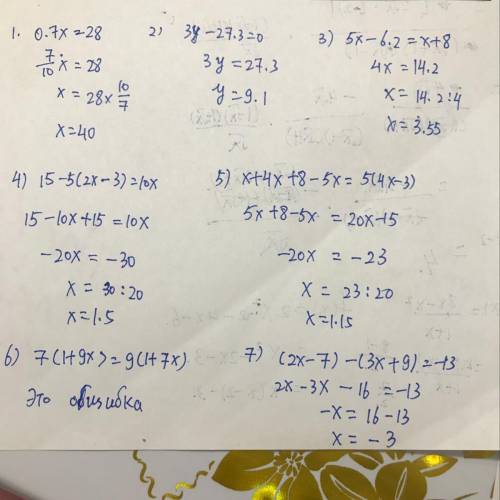 1. 0.7x = 28
7/10 x = 28
x = 28 x 10/7
x = 40
2) 3y - 27.3 = 0
3y = 27.3
y = 9.1
3) 5x - 6.2 = x + 8
4x = 14.2
x = 14.2 : 4
x = 3.55
4) 15 - 5(2x - 3) = 10x
15 - 10x + 15 = 10x
-20x = -30
x = 30 : 20
x = 1.5
5) x + 4x + 8 - 5x = 5(4x - 3)
5x + 8 - 5x = 20x - 15
-20x = -23
x = 23 : 20
x = 1.15
6) 7(1 + 9x) = 9(1 + 7x)
Это ошибка
7) (2x - 7) - (3x + 9) = -13
2x - 3x - 16 = -13
-x = 16 - 13
x = -3